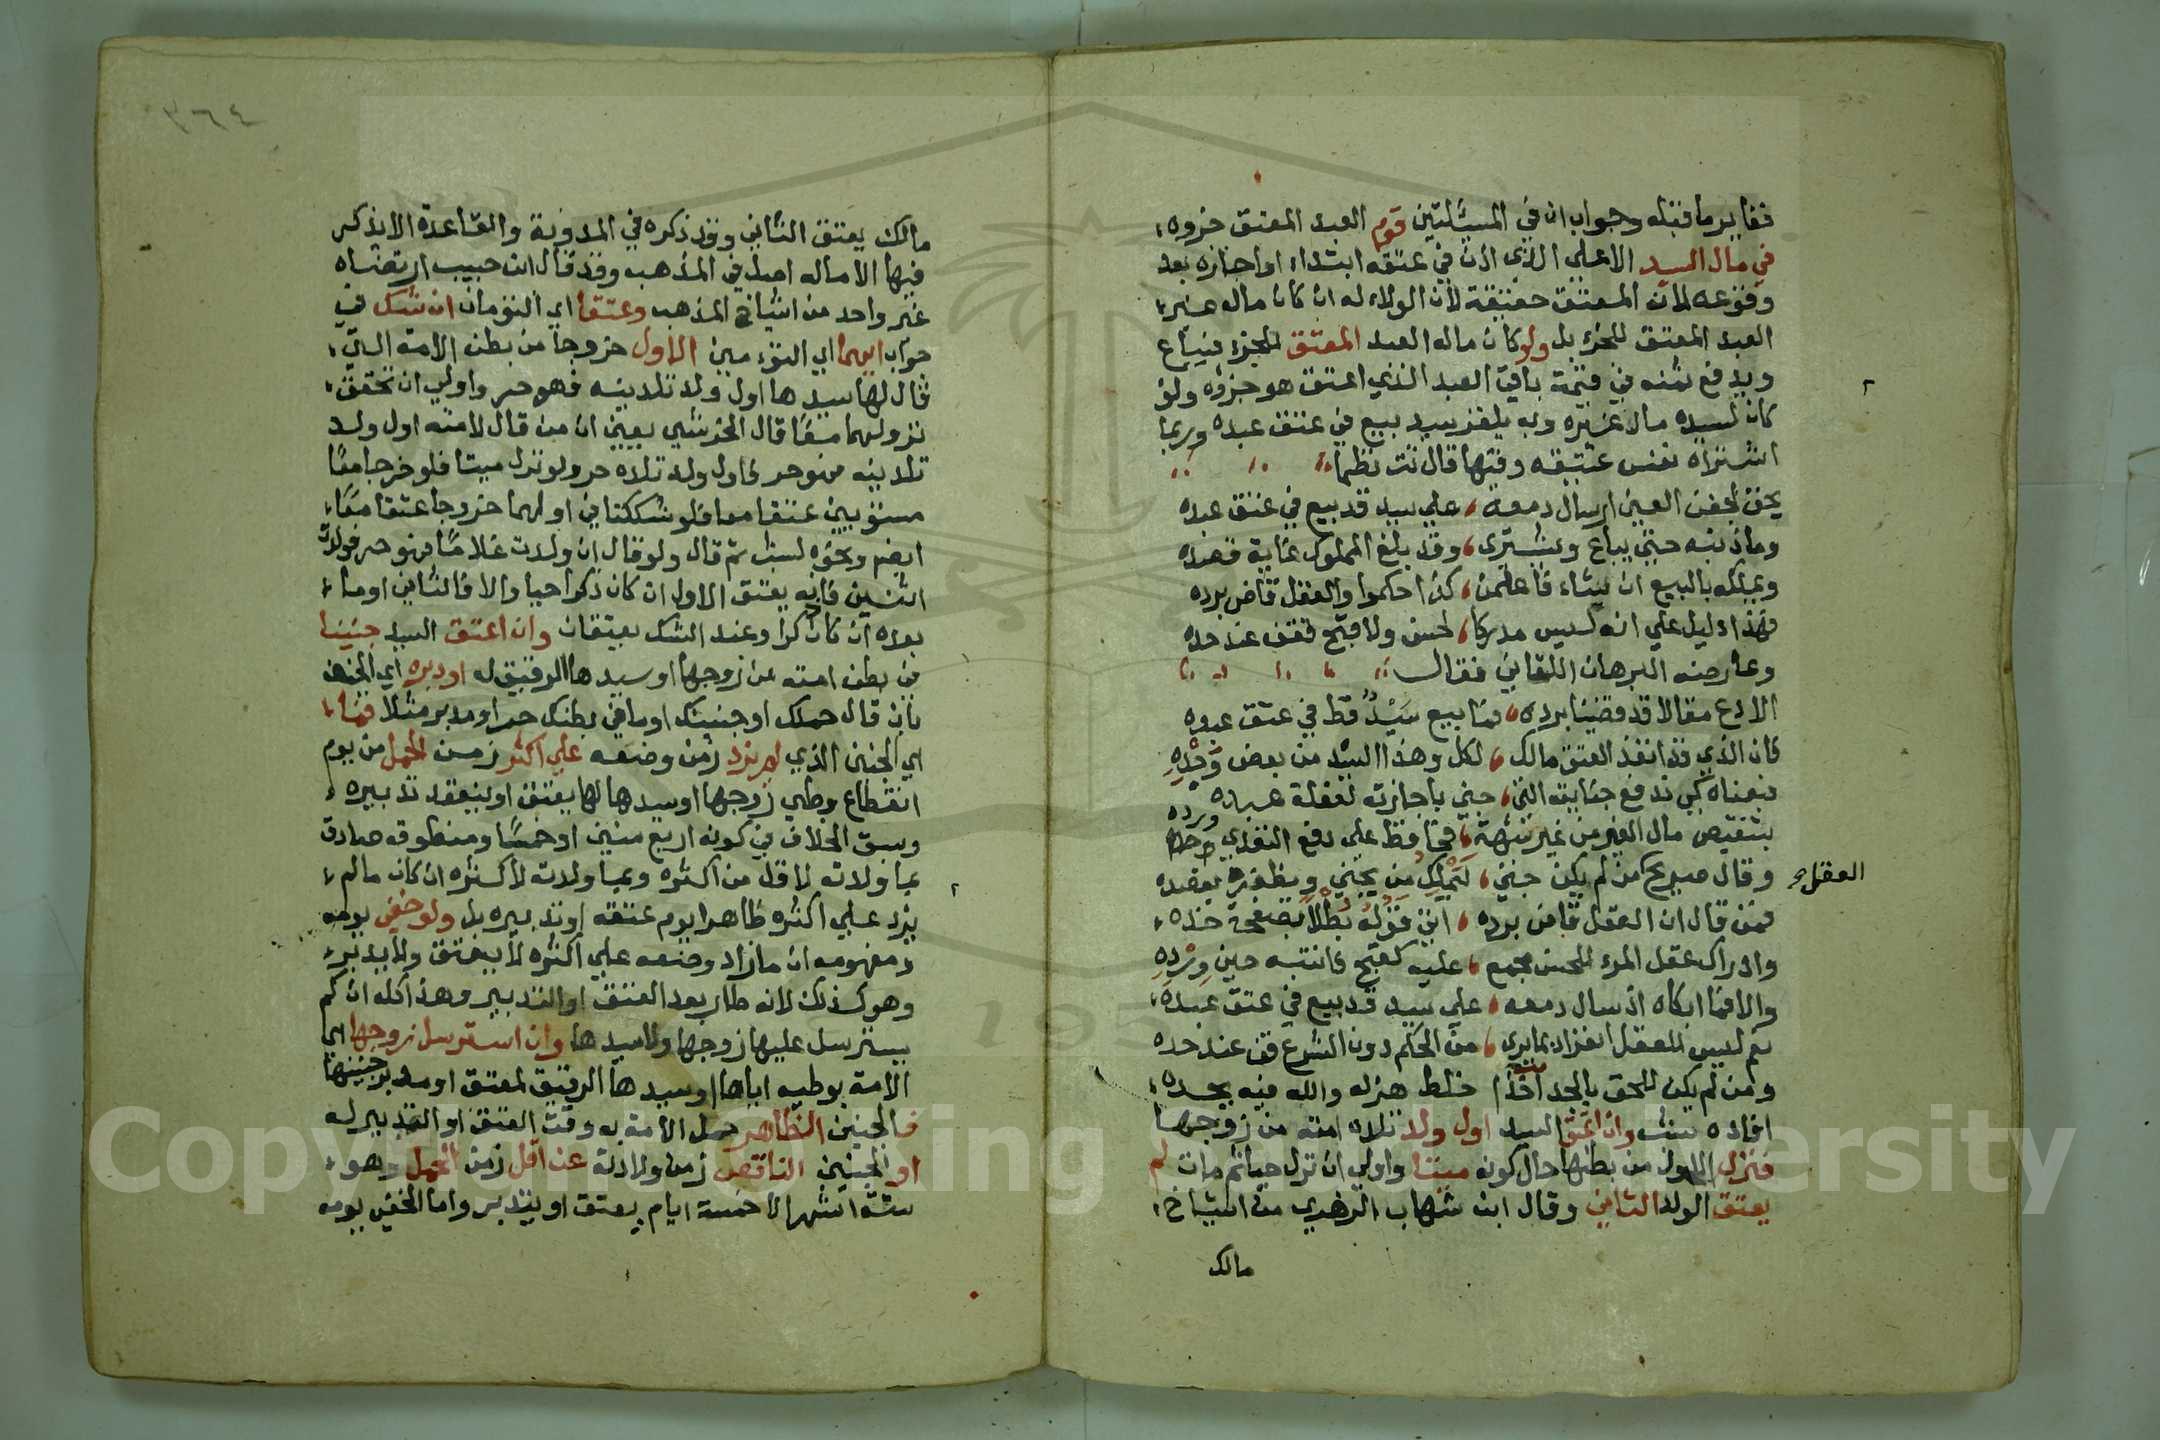 فغاير ما قبله وجواب ان في المسئلتين قوم العبد المعتق جزوه
في مال السيد الاعلى الذي اذن في عتقه ابتداء او اجازه بعد
وقوعه لانه المعتق حقيقة لان الولاء له ان كان ماله غير
العبد المعتق للجزء بل ولو كان ماله العبد المعتق للجزء فيباع
ويدفع ثمنه في قيمة باقي العبد الذي اعتق هو جزوه ولو
كان لسيده مال غيره وبه يلغز سيد بيع في عتق عبده وربما
اشتراه نفس عتيقه وفيها قال تت نظما
يحق لجفن العين ارسال دمعه على سيد قد بيع في عتق عبده
وما ذنبه حتى يباع ويشترى وقد بلغ المملوك غاية قصده
ويملكه بالبيع ان شاء فاعلمن كذا حكموا والعقل قاض برده
فهذا دليل على انه ليس مدركا لحسن ولا قبح فقف عند حده
وعارضه البرهان اللقاني فقال
الا دع مقالا قد قضينا برده فما بيع سيد قط في عتق عبده
كان الذي قد انفذ العتق مالك لكل وهذا السيد من بعض وجده
فبعناه كي ندفع جنايته التي جني باجازته لغفلة عبده
بتنقيص مال الغير من غير شبهة فحافظ على دفع التعدي ورده
وقال صريح من لم يكن جني ليملك من يجني ويظفر بقصده
العقل صح
فمن قال ان العقل قاض برده ابن قوله بطلا بصفحة خده
وادراك عقل المرء للحسن مجمع عليه كقبح فانتبه حين ورده
والا فما ابكاه اذ سال دمعه على سيد قد بيع في عتق عبده
نعم ليس للعقل انفراد بما يرى من الحكم دون الشرع قف عند حده
ومن لم يكن للحق بالجد اخذا خلط هزله والله فيه بجده
افاده شب وان اعتق السيد اول ولد تلده امته من زوجها
فنزل الاول من بطنها حال كونه ميتا واولى ان نزل حيا ثم مات لم
يعتق الولد الثاني وقال ابن شهاب الزهري من اشياخ
مالك
٣٦٤
مالك يعتق الثاني وقد ذكره في المدونة والقاعدة الا يذكر
فيها الا ماله اصل في المذهب وقد قال ابن حبيب ارتضاه
غير واحد من اشياخ المذهب وعتقا اي التوءمان ان شك في
جواب ايهما اي التوءمين الاول خروجا من بطن الامة التي
قال لها سيدها اول ولد تلدينه فهو حر واولى ان تحقق
نزولهما معا قال الخرشي يعني ان من قال لامته اول ولد
تلدينه فهو حر فاول ولد تلده حر ولو نزل ميتا فلو خرجا معا
مستويين عتقا معا فلو شككنا في اولهما خروجا عتقا معا
ايضا ونحوه لشب ثم قال ولو قال ان ولدت غلاما فهو حر فولدت
اثنين فانه يعتق الاول ان كان ذكرا حيا والا فالثاني او ما
بعده ان كان ذكرا وعند الشك يعتقان وان اعتق السيد جنينا
من بطن امته من زوجها او سيدها الرقيق له او دبره اي الجنين
بان قال حملك او جنينك او ما في بطنك حر او مدبر مثلا فما
اي الجنين الذي لم يزد زمن وضعه على اكثر زمن الحمل من يوم
انقطاع وطي زوجها او سيدها لها يعتق او ينعقد تدبيره
وسبق الخلاف في كونه اربع سنين او خمسا ومنطوقه صادق
بما ولدته لاقل من اكثره وبما ولدته لاكثره ان كان مالم
يزد على اكثره ظاهرا يوم عتقه او تدبيره بل ولو خفي يومه
ومفهومه ان ما زاد وضعه على اكثره لا يعتق ولا يدبر
وهو كذلك لانه طار بعد العتق او التدبير وهذا كله ان لم
يسترسل عليها زوجها ولا سيدها وان استرسل زوجها اي
الامة بوطيه اياها او سيدها الرقيق لمعتق او مدبر جنينها
فالجنين الظاهر حمل الامة به وقت العتق او التدبير له
او الجنين الناقص زمن ولادته عن اقل زمن الحمل وهو
ستة اشهر الا خمسة ايام يعتق او يتدبر واما الخفي يومه
Copyright © King Saud University